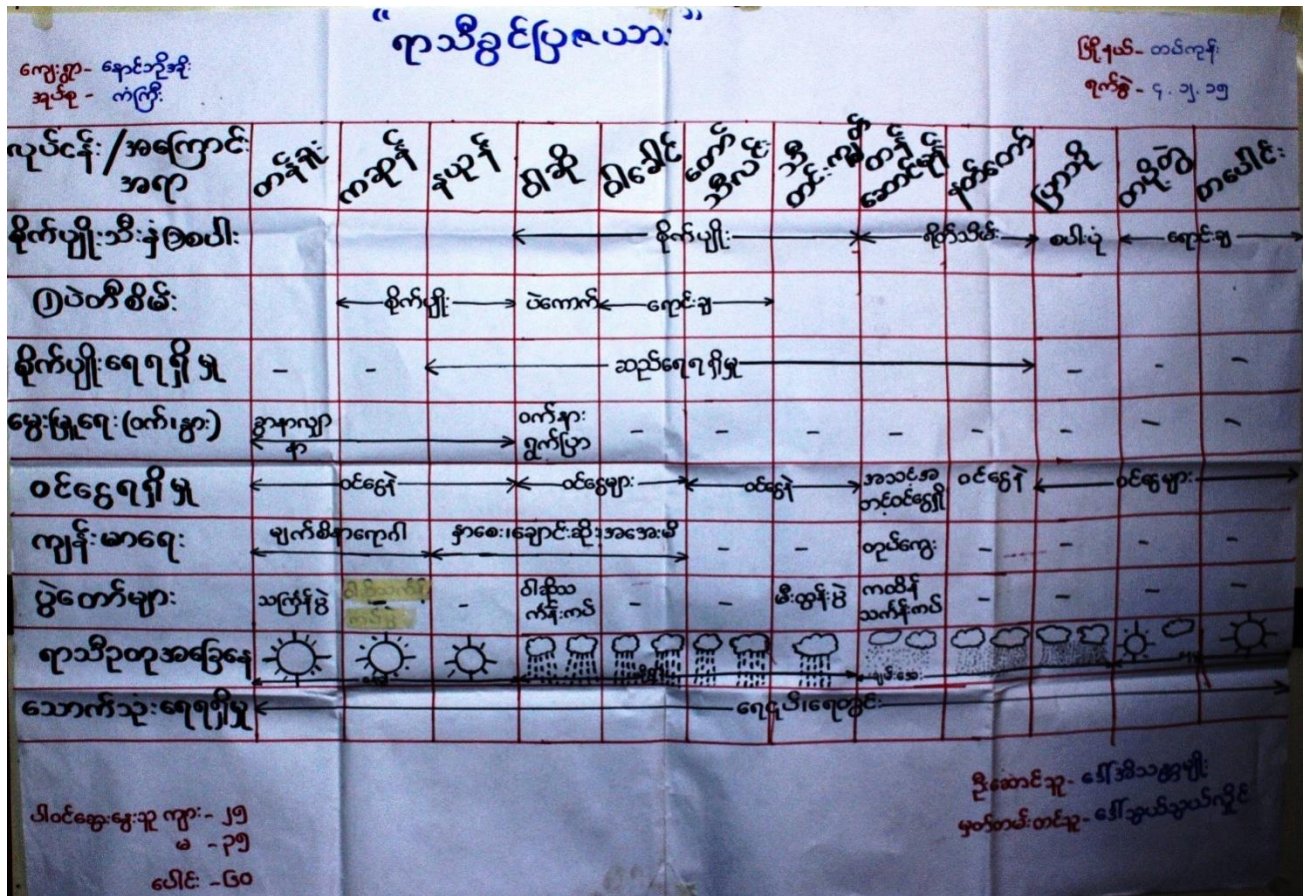 “ရာသီခွင်ပြဇယား”
ကျေးရွာ- နောင်ဘိုအိုး
အုပ်စု - ကံကြီး
မြို့နယ်- တပ်ကုန်း
ရက်စွဲ- ၄.၁၂.၁၅
လုပ်ငန်း/အကြောင်းအရာ တန်ခူး ကဆုန် နယုန် ဝါဆို ဝါခေါင် တော်သလင်း သီတင်းကျွတ် တန်ဆောင်မုန်း နတ်တော် ပြာသို တပို့တွဲ တပေါင်း
စိုက်ပျိုးသီးနှံ①စပါး စိုက်ပျိုး ရိတ်သိမ်း စပါးပုံ ရောင်းချ
②ပဲတီစိမ်း စိုက်ပျိုး ပဲကောက် ရောင်းချ
စိုက်ပျိုးရေရရှိမှု - - ဆည်ရေရရှိမှု - - -
မွေးမြူရေး(ဝက်၊နွား) ခွာနာလျှာနာ ဝက်နားရွက်ပြာ - - - - - - - -
ဝင်ငွေရရှိမှု ဝင်ငွေနဲ ဝင်ငွေများ ဝင်ငွေနဲ အသင့်အတင့်ဝင်ငွေရှိ ဝင်ငွေနဲ ဝင်ငွေများ
ကျန်းမာရေး မျက်စိနာရောဂါ နှာစေး၊ချောင်းဆိုး၊အအေးမိ - - တုပ်ကွေး - - - -
ပွဲတော်များ သင်္ကြန်ပွဲ - - ဝါဆိုသင်္ကန်းကပ် - - မီးထွန်းပွဲ ကထိန်သင်္ကန်းကပ် - - - -
ရာသီဥတုအခြေနေ
သောက်သုံးရေရရှိမှု ရေငုပ်၊ရေတွင်း
ပါဝင်ဆွေးနွေးသူ ကျား - ၂၅
မ - ၃၅
ပေါင်း - ၆၀
ဦးဆောင်သူ- ဒေါ်အိသန္တာမျိုး
မှတ်တမ်းတင်သူ- ဒေါ်သွယ်သွယ်လှိုင်